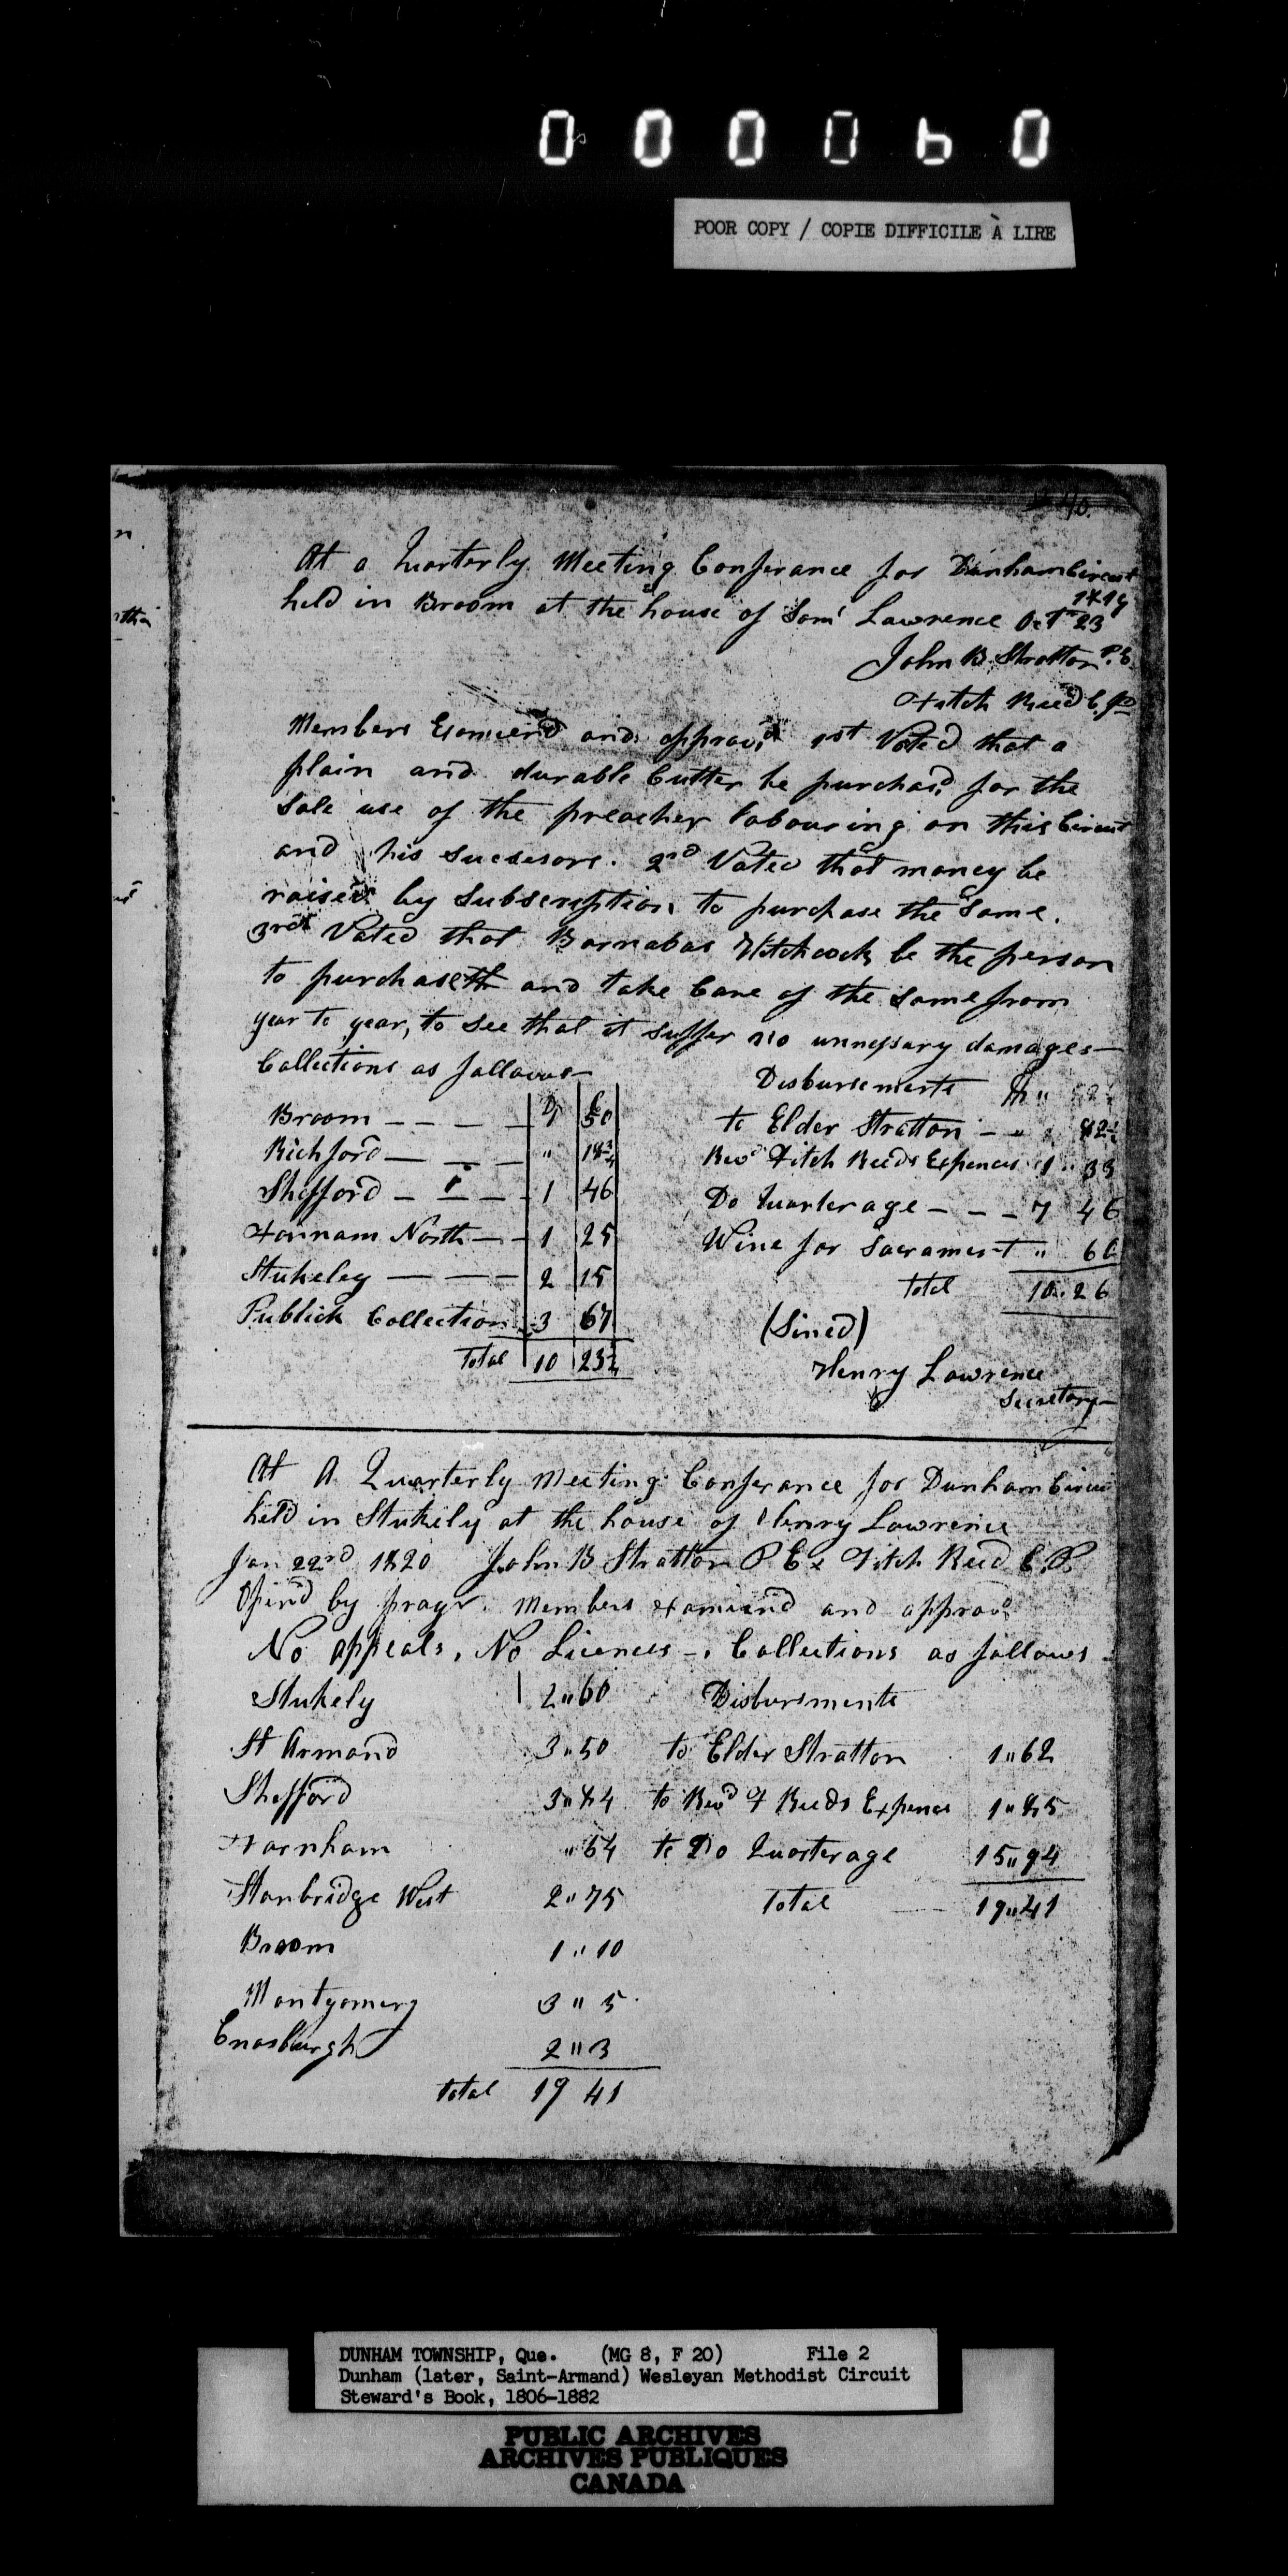 000060
POOR COPY / COPIE DIFFICILE À LIRE
40.
At a Quarterly Meeting Conferance for Dunham Circut
held in Broom at the house of Saml Lawrence Oct 23 1819
John B Stratton P. E
Fitch Reed C P
Members Examiend and approvd 1st Voted that a
plain and durable Cutter be purchasd for the
Sole use of the preacher labouring on this Circut
and his Sucsesors. 2nd Voted that money be
raised by Subscription to purchase the Same.
3rd Voted that Barnabas Hitchcock be the person
to purchase and take Care of the Same from
year to year, to See that it suffer no unnessary damages—
Collections as follows—
D C
Broom — — — — 50
Richford — — — " 18 3/4
Shefford — — — 1 46
Farnam North — — 1 25
Stukeley — — — 2 15
Publick Collection 3 67
Total 10 23
Disbursements
to Elder Stratton — " 82
Revd Fitch Reeds Expences 1 " 33
Do Quarterage — — — 7 46
Wine for Sacrament "
Total 10 " 26
(Sined)
Henry Lawrence
Secretary—
At A Quarterly Meeting Conferance for Dunham Circut
held in Stukely at the house of Henry Lawrence
Jan 22nd 1820 John B Stratton P E & Fitch Reed C. P.
Opend by prayr. Members Examiend and approvd
No appeals. No Licences —. Collections as follows
Stukely 2 " 60 Disbursments
St Armand 3 " 50 to Elder Stratton 1 " 62
Shefford 3 " 74 to Revd F Reeds Expences 1 " 85
Farnham " 64 to Do Quarterage 15 " 94
Stanbridge West 2 " 75 Total 19 " 41
Broom 1 " 10
Montgomery 3 " 5
Enosburgh 2 " 3
total 19 41
DUNHAM TOWNSHIP, Que. (MG 8, F 20) File 2
Dunham (later, Saint-Armand) Wesleyan Methodist Circuit
Steward's Book, 1806-1882
PUBLIC ARCHIVES
ARCHIVES PUBLIQUES
CANADA